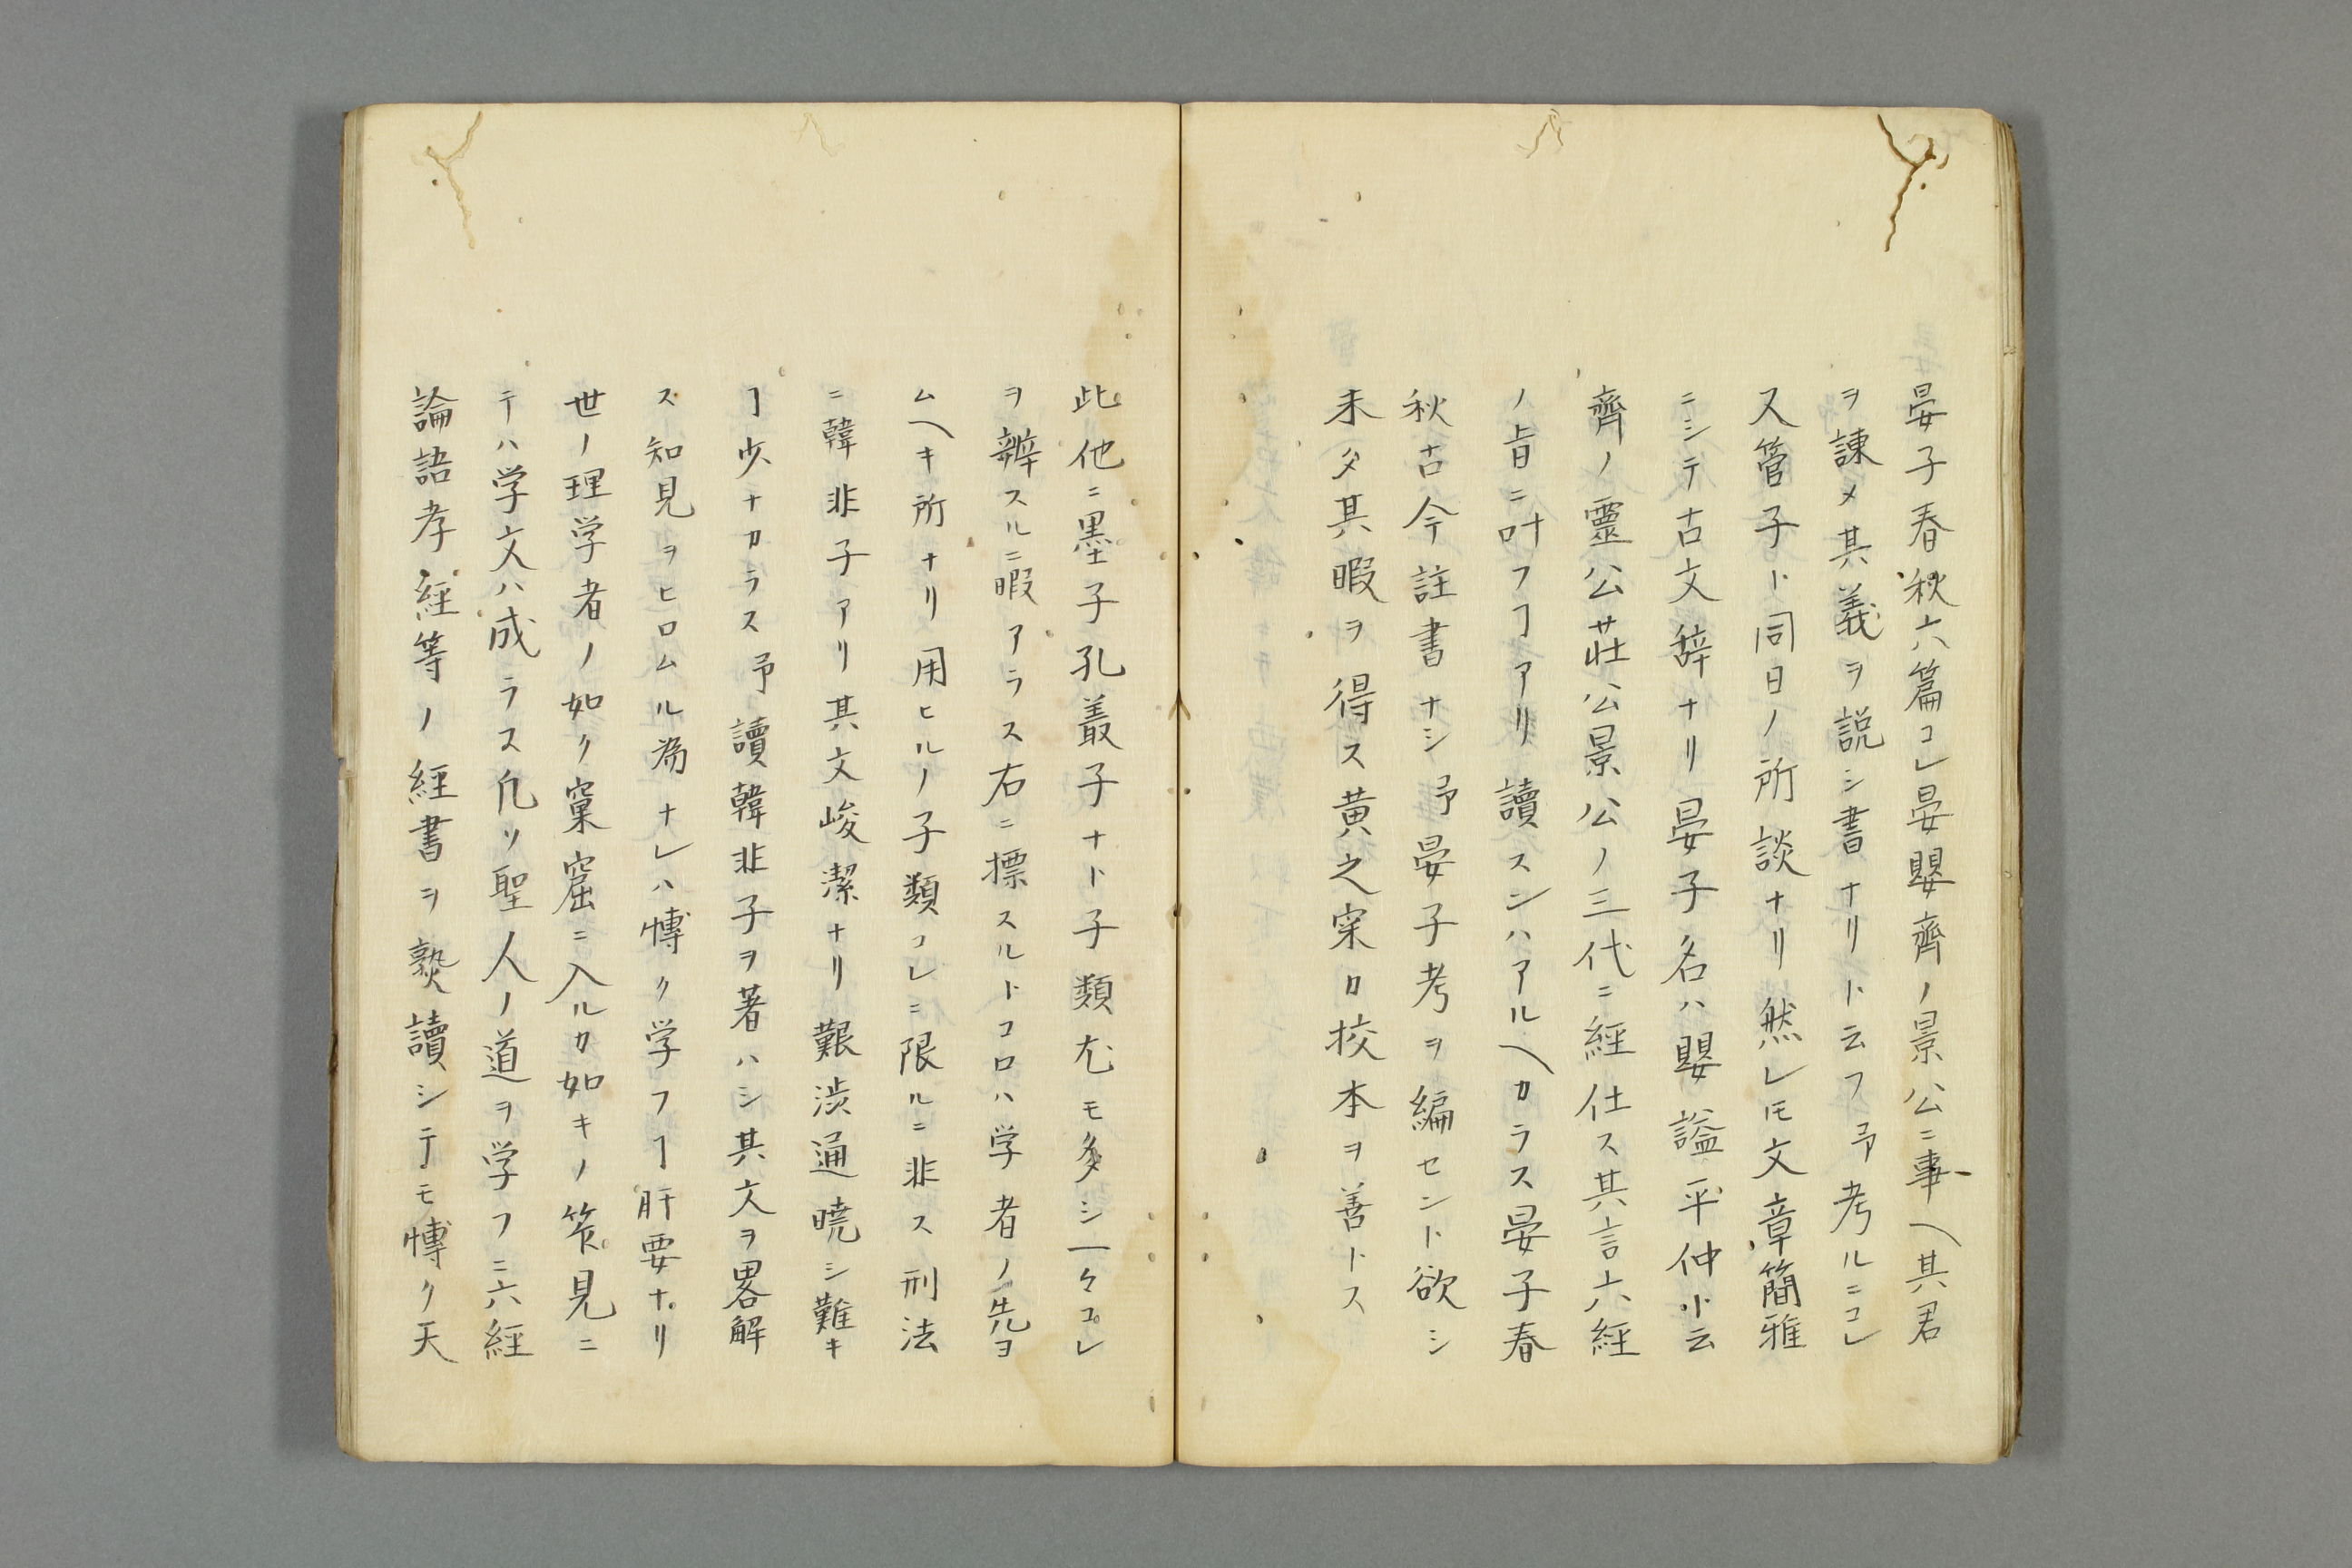 晏子春秋六篇コレ晏嬰齊ノ景公ニ事ヘ其君
ヲ諌メ其義ヲ説シ書ナリト云フ予考ルニコレ
又管子ト同日ノ所談ナリ然レ𪜈文章簡雅
ニシテ古文辞ナリ晏子名ハ嬰謚平仲ト云
齊ノ靈公荘公景公ノ三代ニ經仕ス其言六經
ノ旨ニ叶フヿアリ讀スンハアルヘカラス晏子春
秋古今註書ナシ予晏子考ヲ編セント欲シ
未タ其暇ヲ得ス黄之寀カ挍本ヲ善トス
此他ニ墨子孔叢子ナト子類尤モ多シ一々コレ
ヲ辨スルニ暇アラス右ニ標スルトコロハ学者ノ先ヨ
ムヘキ所ナリ用ヒルノ子類コレニ限ルニ非ス刑法
ニ韓非子アリ其文峻潔ナリ艱渋通曉シ難キ
ヿ少ナカラス予讀韓非子ヲ著ハシ其文ヲ畧解
ス知見ヲヒロムル為ナレハ博ク学フヿ肝要ナリ
世ノ理学者ノ如ク窠窟ニ入ルカ如キノ笮見ニ
テハ学文ハ成ラス凡ソ聖人ノ道ヲ学フニ六經
論語孝經等ノ經書ヲ熟讀シテモ博ク天